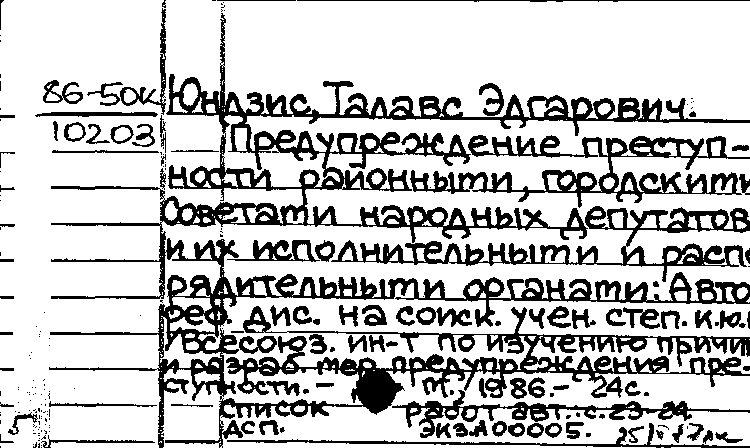 86-50к Юндзис, Талавс Эдгарович.
10203 Предупреждение преступ-
ности районными, городскими
Советами народных депутатов
и их исполнительными и распо
рядительными органами: Авто
реф. дис. на соиск. учен. степ. к.ю.
/ Всесоюз. ин-т по изучению причи
и разраб. мер предупреждения пре-
ступности. – М., 1986. – 24с.
Список работ авт.: с. 23-24
ДСП. Экз.А00005.